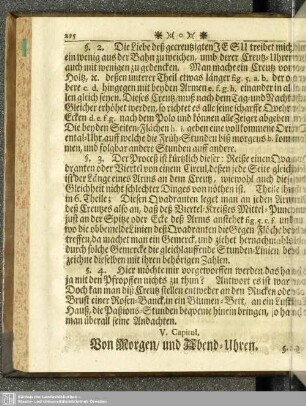 225
§. 2. Die Liebe deß gecreutzigten JESU treibet mich,
ein wenig aus der Bahn zu weichen, umb derer Creutz-Uhren
auch mit wenigen zu gedencken. Man mache ein Creutz von
Holtz, ꝛc. dessen unterer Theil etwas länger fig. 5. a. b. der o-
bere c. d. hingegen mit beyden Armen e. f. g. h. einander in al-
len gleich seyen. Dieses Creutz, muß nach dem Tag- und Nacht-
Gleicher erhöhet werden, so richtet es alle seine scharffe
Ecken d. e. f. g. nach dem Polo und können alle Zeiger abgeben
Die beyden Seiten-Flächen h. i. geben eine vollkommene Ori-
ental-Uhr, auff welche die Früh-Stunden biß morgens
men, und solgbar andere Stunden auff andere.
§. 3. Der Proceß ist kürtzlich dieser: Reiße einen Qva-
dranten oder Viertel von einem Circul, deßen jede Seite gleich
ist der Länge eines Arms an dem Creutz, wiewohl auch die
Gleichheit nicht schlechter Dinges von nöthen ist. Theile ihn
in 6. Theile: Diesen Qvadranten leget man an jeden Arm
deß Creutzes also an, daß deß Viertel-Kreißes Mittel-Punct
just an der Spitze oder Ecke deß Arms anstehet fig. 5. c. f. und
wo die obbemeldte Linien deß Qvadranten die Gegen-Fläche be-
treffen, da machet man ein Gemerck, und ziehet hernachmahls
durch solche Gemercke die gleichlauffende Stunden-Linien, be-
zeichne dieselben mit ihren behörigen Zahlen.
§. 4. Hier möchte mir vorgeworffen werden das
ja mit den Pfropffen nichts zu thun? Antwort es ist war
Doch kan man diß Creutz stellen entweder an den Rucken oder
Brust einer Rosen-Banck, in ein Blumen-Bett, an ein Lust-
Hauß, die Paßions-Stunden beqveme hinein bringen, so ha-
man überall seine Andachten.
V. Capitul,
Von Morgen- und Abend-Uhren.